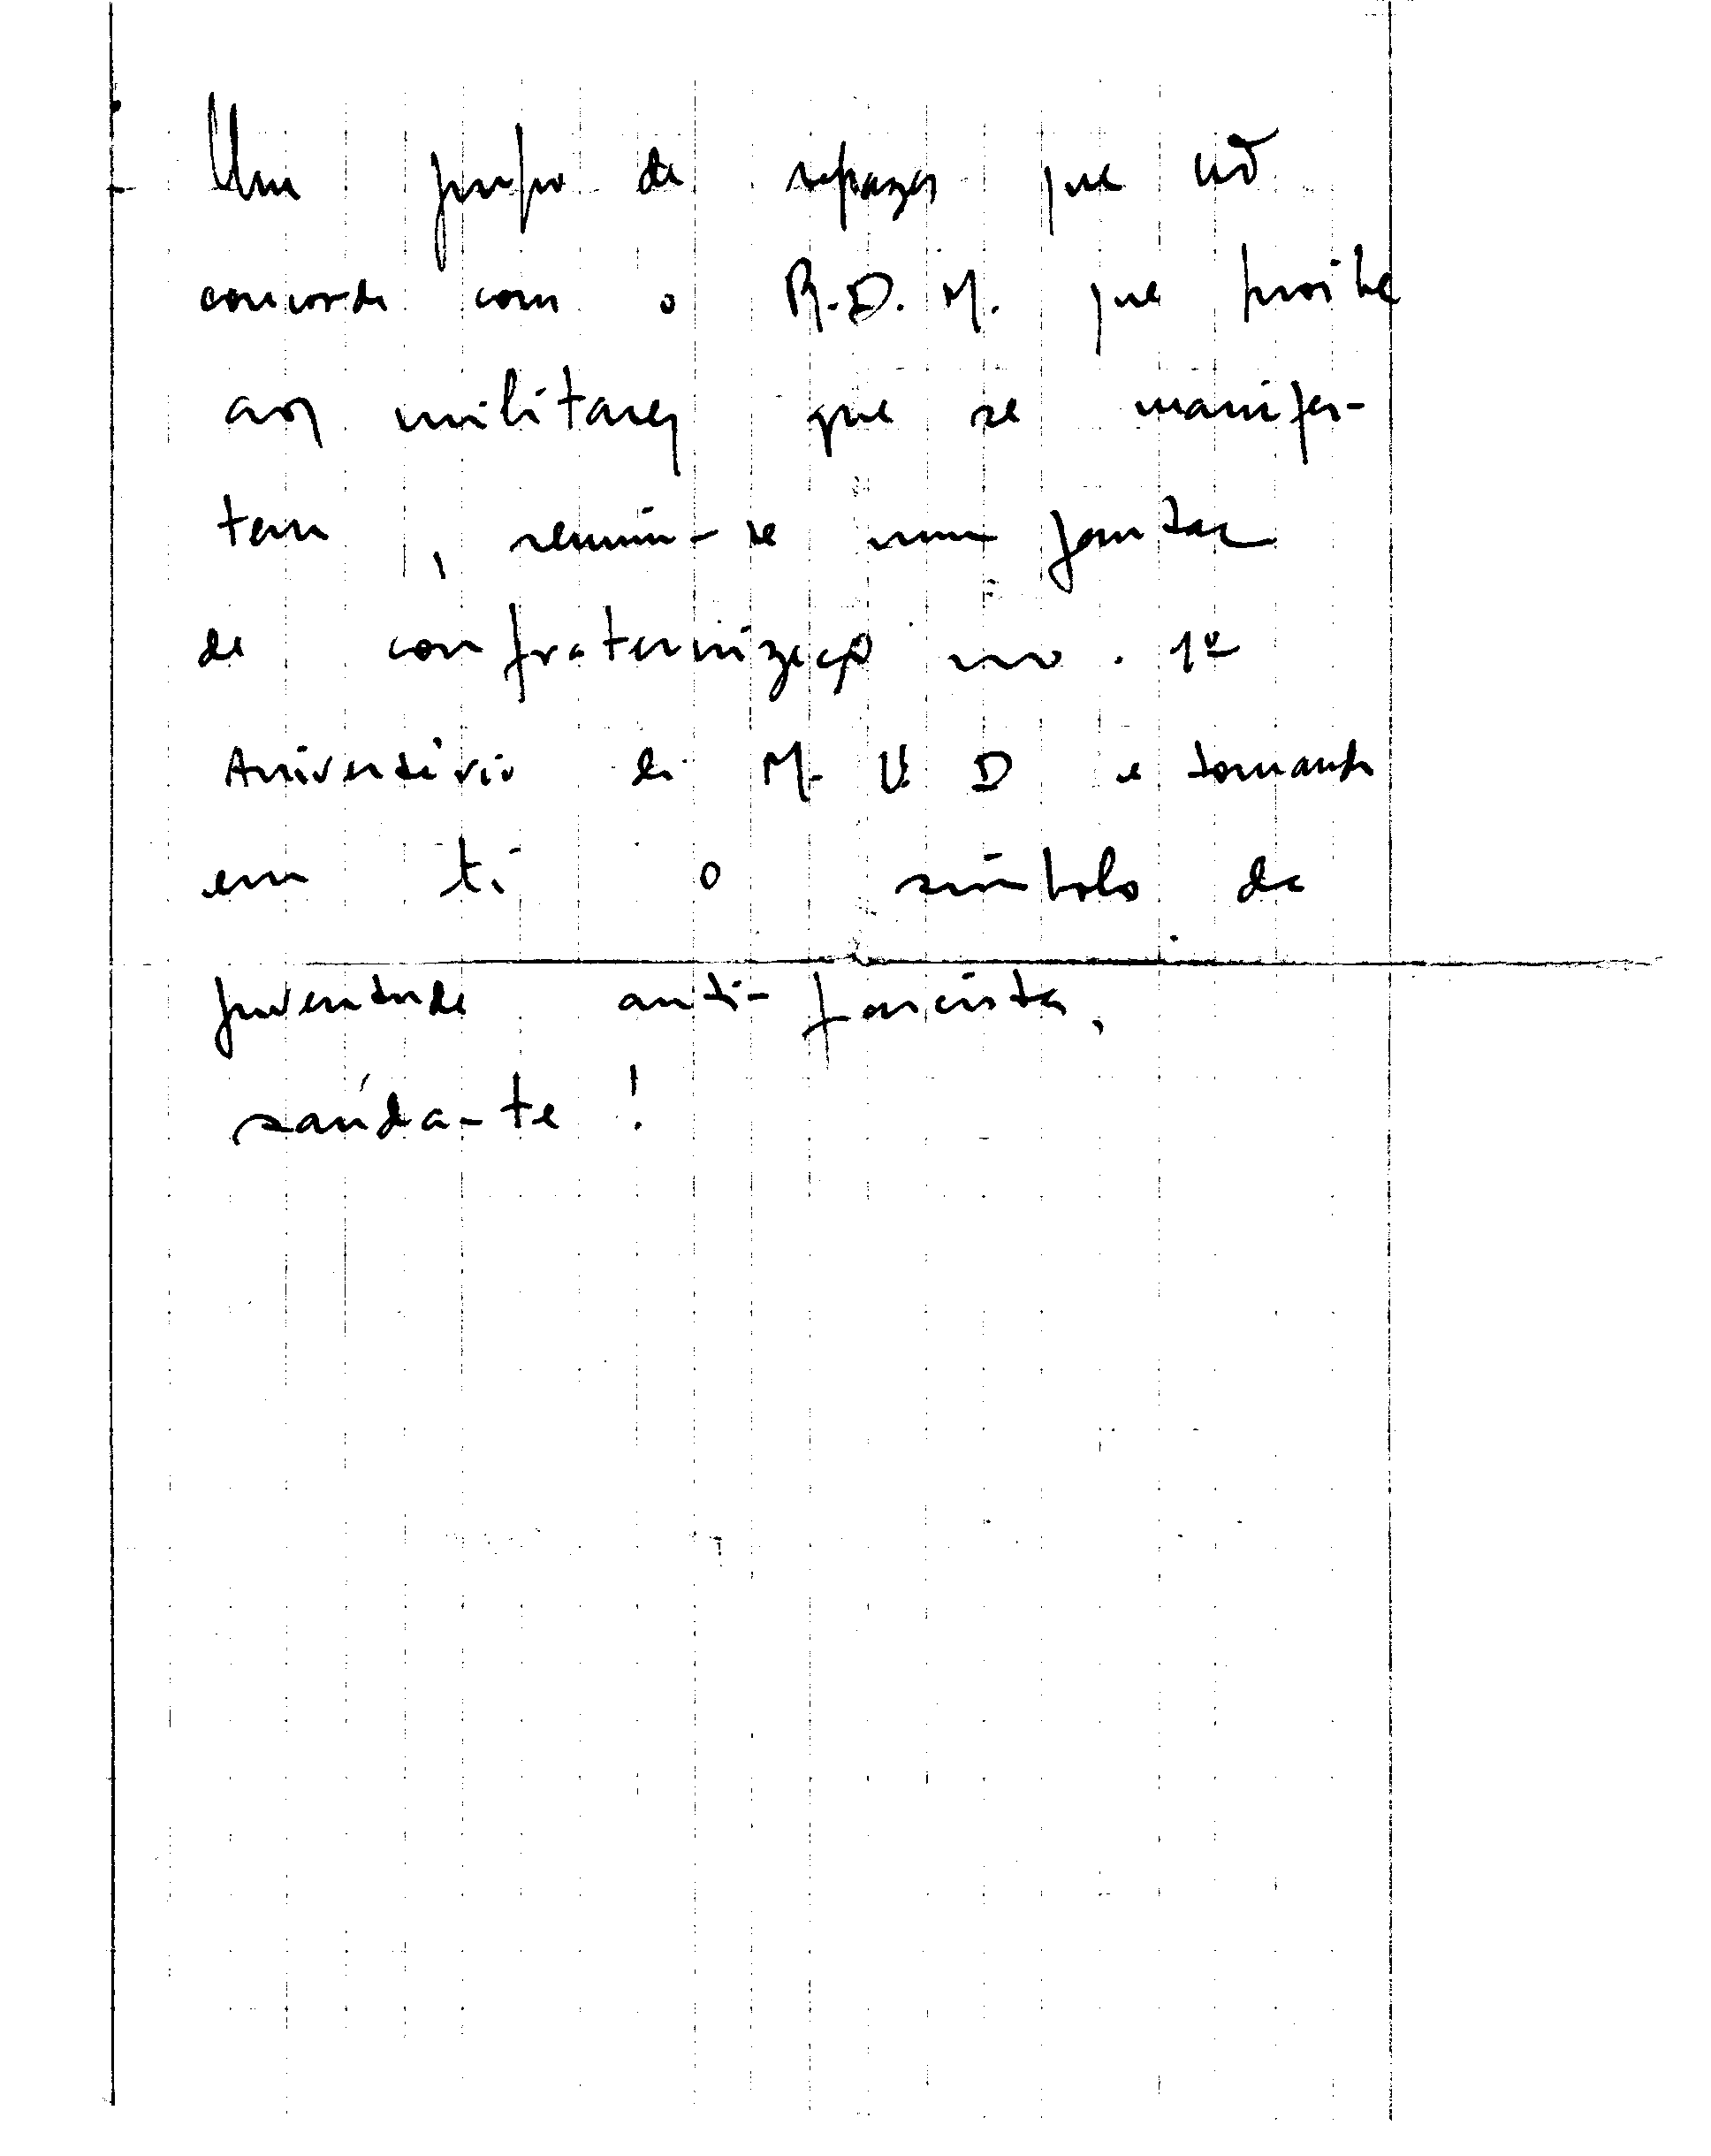 Um grupo de rapazes que não
concorda com o R.D.M. que proibe
aos militares que se manifes-
tem, reuniu-se num jantar
de confraternização no 1º
Aniversário do M.U.D e tomando
em ti o símbolo da
juventude anti-fascista,
saúda-te!